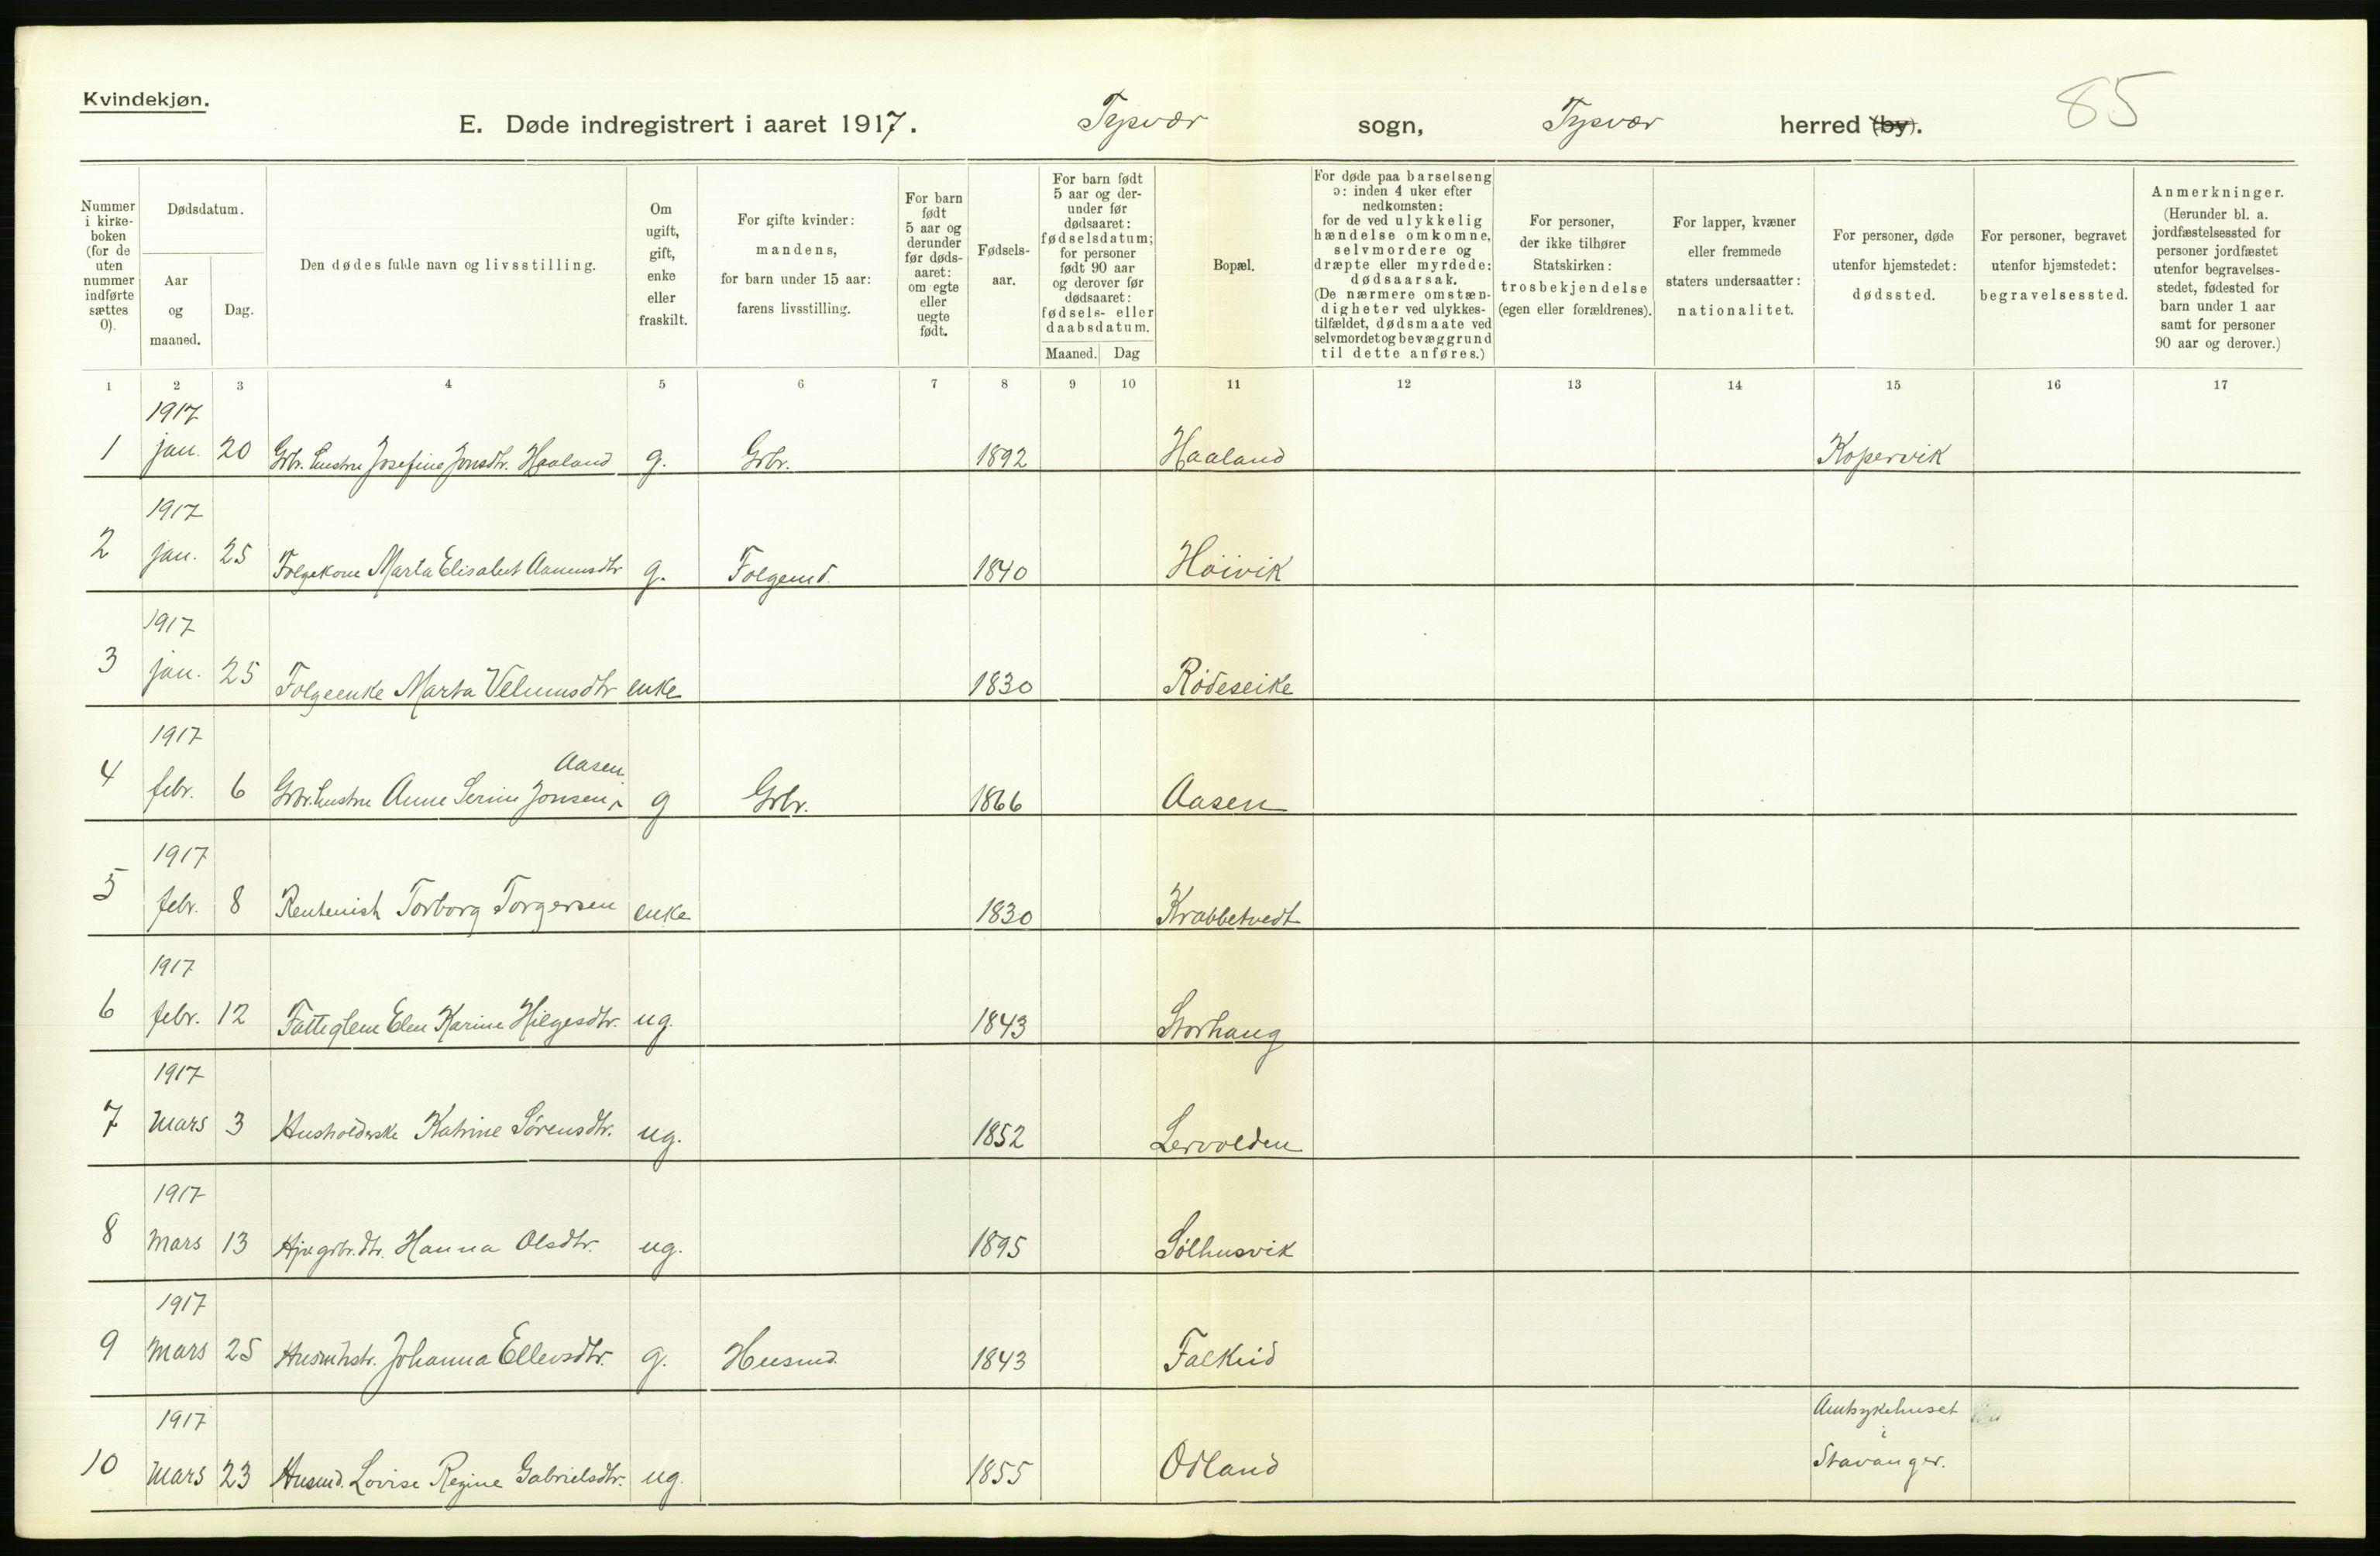 Kvindekjøn.
E. Døde indregistrert i aaret 1917. Tysvær sogn, Tysvær herred (by).
85
Nummer i kirke-boken (for de uten nummer indførte sættes 0).
Dødsdatum.
Aar og maaned.
Dag.
Den dødes fulde navn og livsstilling.
Om ugift, gift, enke eller fraskilt.
For gifte kvinder: mandens, for barn under 15 aar: farens livsstilling.
For barn født 5 aar og derunder før døds-aaret: om egte eller uegte født.
Fødsels-aar.
For barn født 5 aar og der-under før dødsaaret: fødselsdatum; for personer født 90 aar og derover før dødsaaret: fødsels- eller daabsdatum.
Maaned. Dag
Bopæl.
For døde paa barselseng ɔ: inden 4 uker efter nedkomsten: for de ved ulykkelig hændelse omkomne, selvmordere og dræpte eller myrdede: dødsaarsak. (De nærmere omstæn-digheter ved ulykkes-tilfældet, dødsmaate ved selvmordet og bevæggrund til dette anføres.)
For personer, der ikke tilhører Statskirken: trosbekjendelse (egen eller forældrenes).
For lapper, kvæner eller fremmede staters undersaatter: nationalitet.
For personer, døde utenfor hjemstedet: dødssted.
For personer, begravet utenfor hjemstedet: begravelsessted.
Anmerkninger. (Herunder bl. a. jordfæstelsessted for personer jordfæstet utenfor begravelses-stedet, fødested for barn under 1 aar samt for personer 90 aar og derover.)
1 2 3 4 5 6 7 8 9 10 11 12 13 14 15 16 17
1917
1 jan. 20 Grbr. hustru Josefine Jonsdtr. Haaland g. Grbr. 1892 Haaland Kopervik
1917
2 jan. 25 Folgekone Marta Elisabet Aamunsdtr g. Folgemd. 1840 Høivik
1917
3 jan. 25 Folgeenke Marta Velumsdtr enke 1830 Rødeseike
1917
Aasen
4 febr. 6 Grbr. hustru Anne Serine Jonsen g Grbr. 1866 Aasen
1917
5 febr. 8 Rentenist Torborg Torgersen enke 1830 Krabbetvedt
1917
6 febr. 12 Fattiglem Elen Karine Hilgesdtr. ug. 1843 Storhaug
1917
7 Mars 3 Husholderske Katrine Sørensdtr. ug. 1852 Lervolden
1917
8 Mars 13 Hjv grbr. dtr. Hanna Olsdtr. ug. 1895 Sølhusvik
1917
9 Mars 25 Husmhstr. Johanna Ellevsdtr. g. Husmd. 1843 Falkeid
1917 Amtsykehuset
i
10 Mars 23 Husmd. Lovise Regine Gabrielsdtr. ug. 1855 Odland Stavanger.